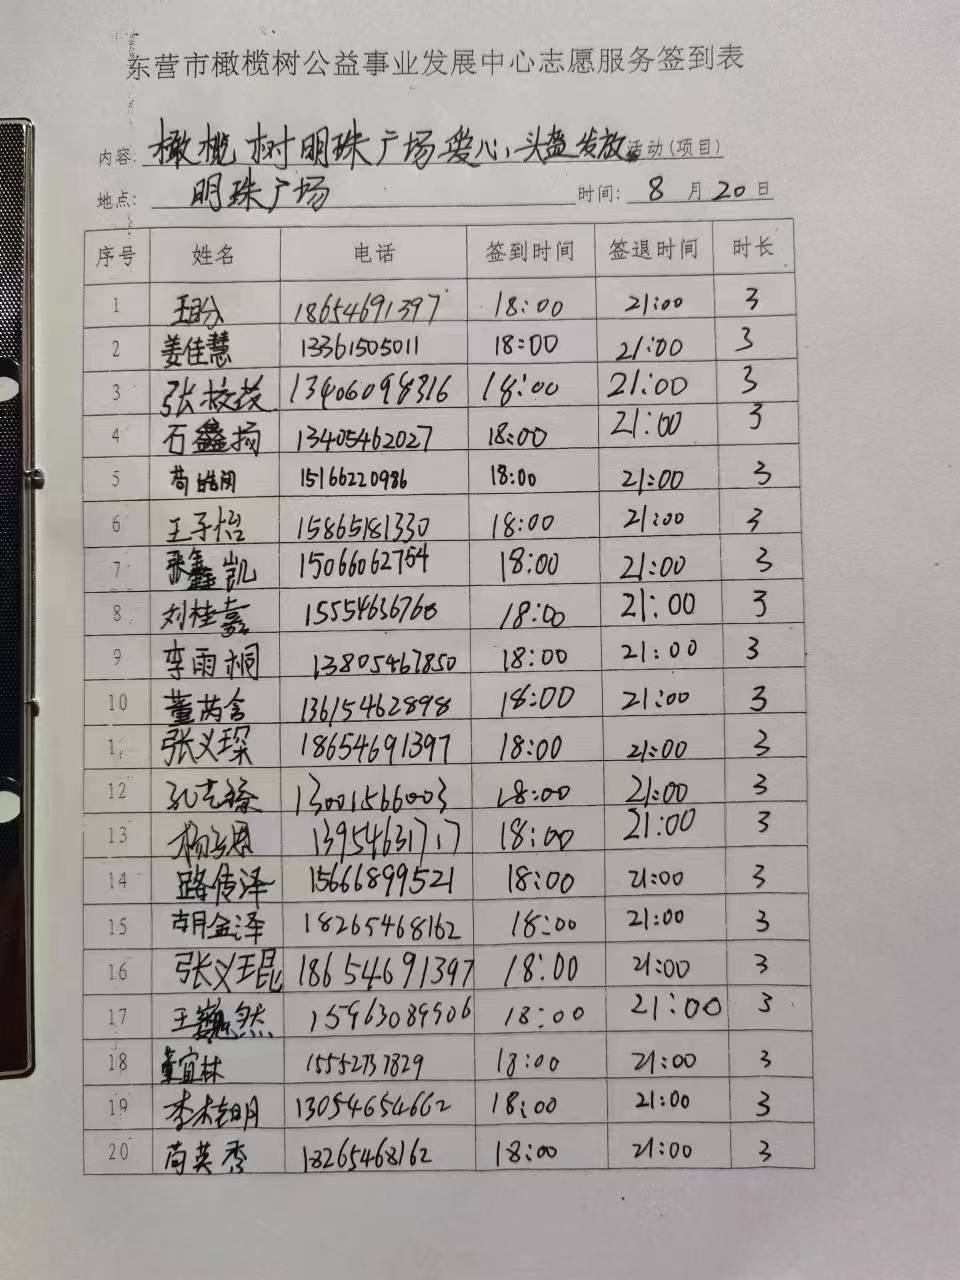 东营市橄榄树公益事业发展中心志愿服务签到表
内容: 橄榄树明珠广场爱心头盔发放活动(项目)
地点: 明珠广场 时间: 8月20日
序号 姓名 电话 签到时间 签退时间 时长
1 18654691397 18:00 21:00 3
2 姜佳慧 13361505011 18:00 21:00 3
3 张 13406098316 18:00 21:00 3
4 石鑫扬 13405462027 18:00 21:00 3
5 苟皓闵 15166220986 18:00 21:00 3
6 王子怡 15865181330 18:00 21:00 3
7 张鑫凯 15066062754 18:00 21:00 3
8 刘桂嘉 15554636760 18:00 21:00 3
9 李雨桐 13805467850 18:00 21:00 3
10 董芮含 13615462898 18:00 21:00 3
11 张义琛 18654691397 18:00 21:00 3
12 孔志臻 13001566003 18:00 21:00 3
13 杨 13954631717 18:00 21:00 3
14 路传泽 15666899521 18:00 21:00 3
15 胡金泽 18265468162 18:00 21:00 3
16 张义琨 18654691397 18:00 21:00 3
17 王巍然 15963089906 18:00 21:00 3
18 董宜林 15552737829 18:00 21:00 3
19 李 13054654662 18:00 21:00 3
20 苟英秀 18265468162 18:00 21:00 3